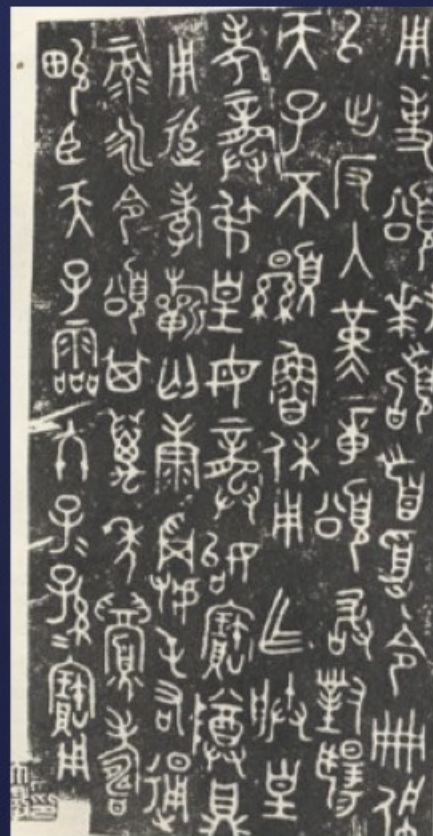 用事頌拜稽首受令冊佩
以出反入堇章頌敢對揚
天子不顯魯休用乍朕皇
考龏弔皇母龏姒寶尊鼎
用追孝匄康屯右通
彔永令頌其萬年眉壽
畯臣天子霝冬子=孫=寶用